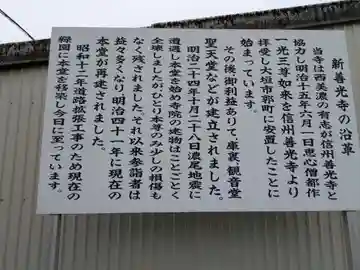 新善光寺の沿革
当寺は西美濃の有志が信州善光寺と
協力し明治十五年六月一日恵心僧都作
一光三尊如来を信州善光寺より
拝受し大垣市郭町に安置したことに
始まっています。
その後御利益ありて、庫裏、観音堂
聖天堂などが建立されました。
明治二十四年十月二十八日濃尾地震に
遭遇し本堂を始め寺院の建物はことごとく
全壊しましたがひとり本尊のみ少しの損傷も
なく残されました。それ以来参詣者は
益々多くなり、明治四十一年に現在の
本堂が再建されました。
昭和十二年道路拡張工事のため現在の
緑園に本堂を移転し今日に至っています。